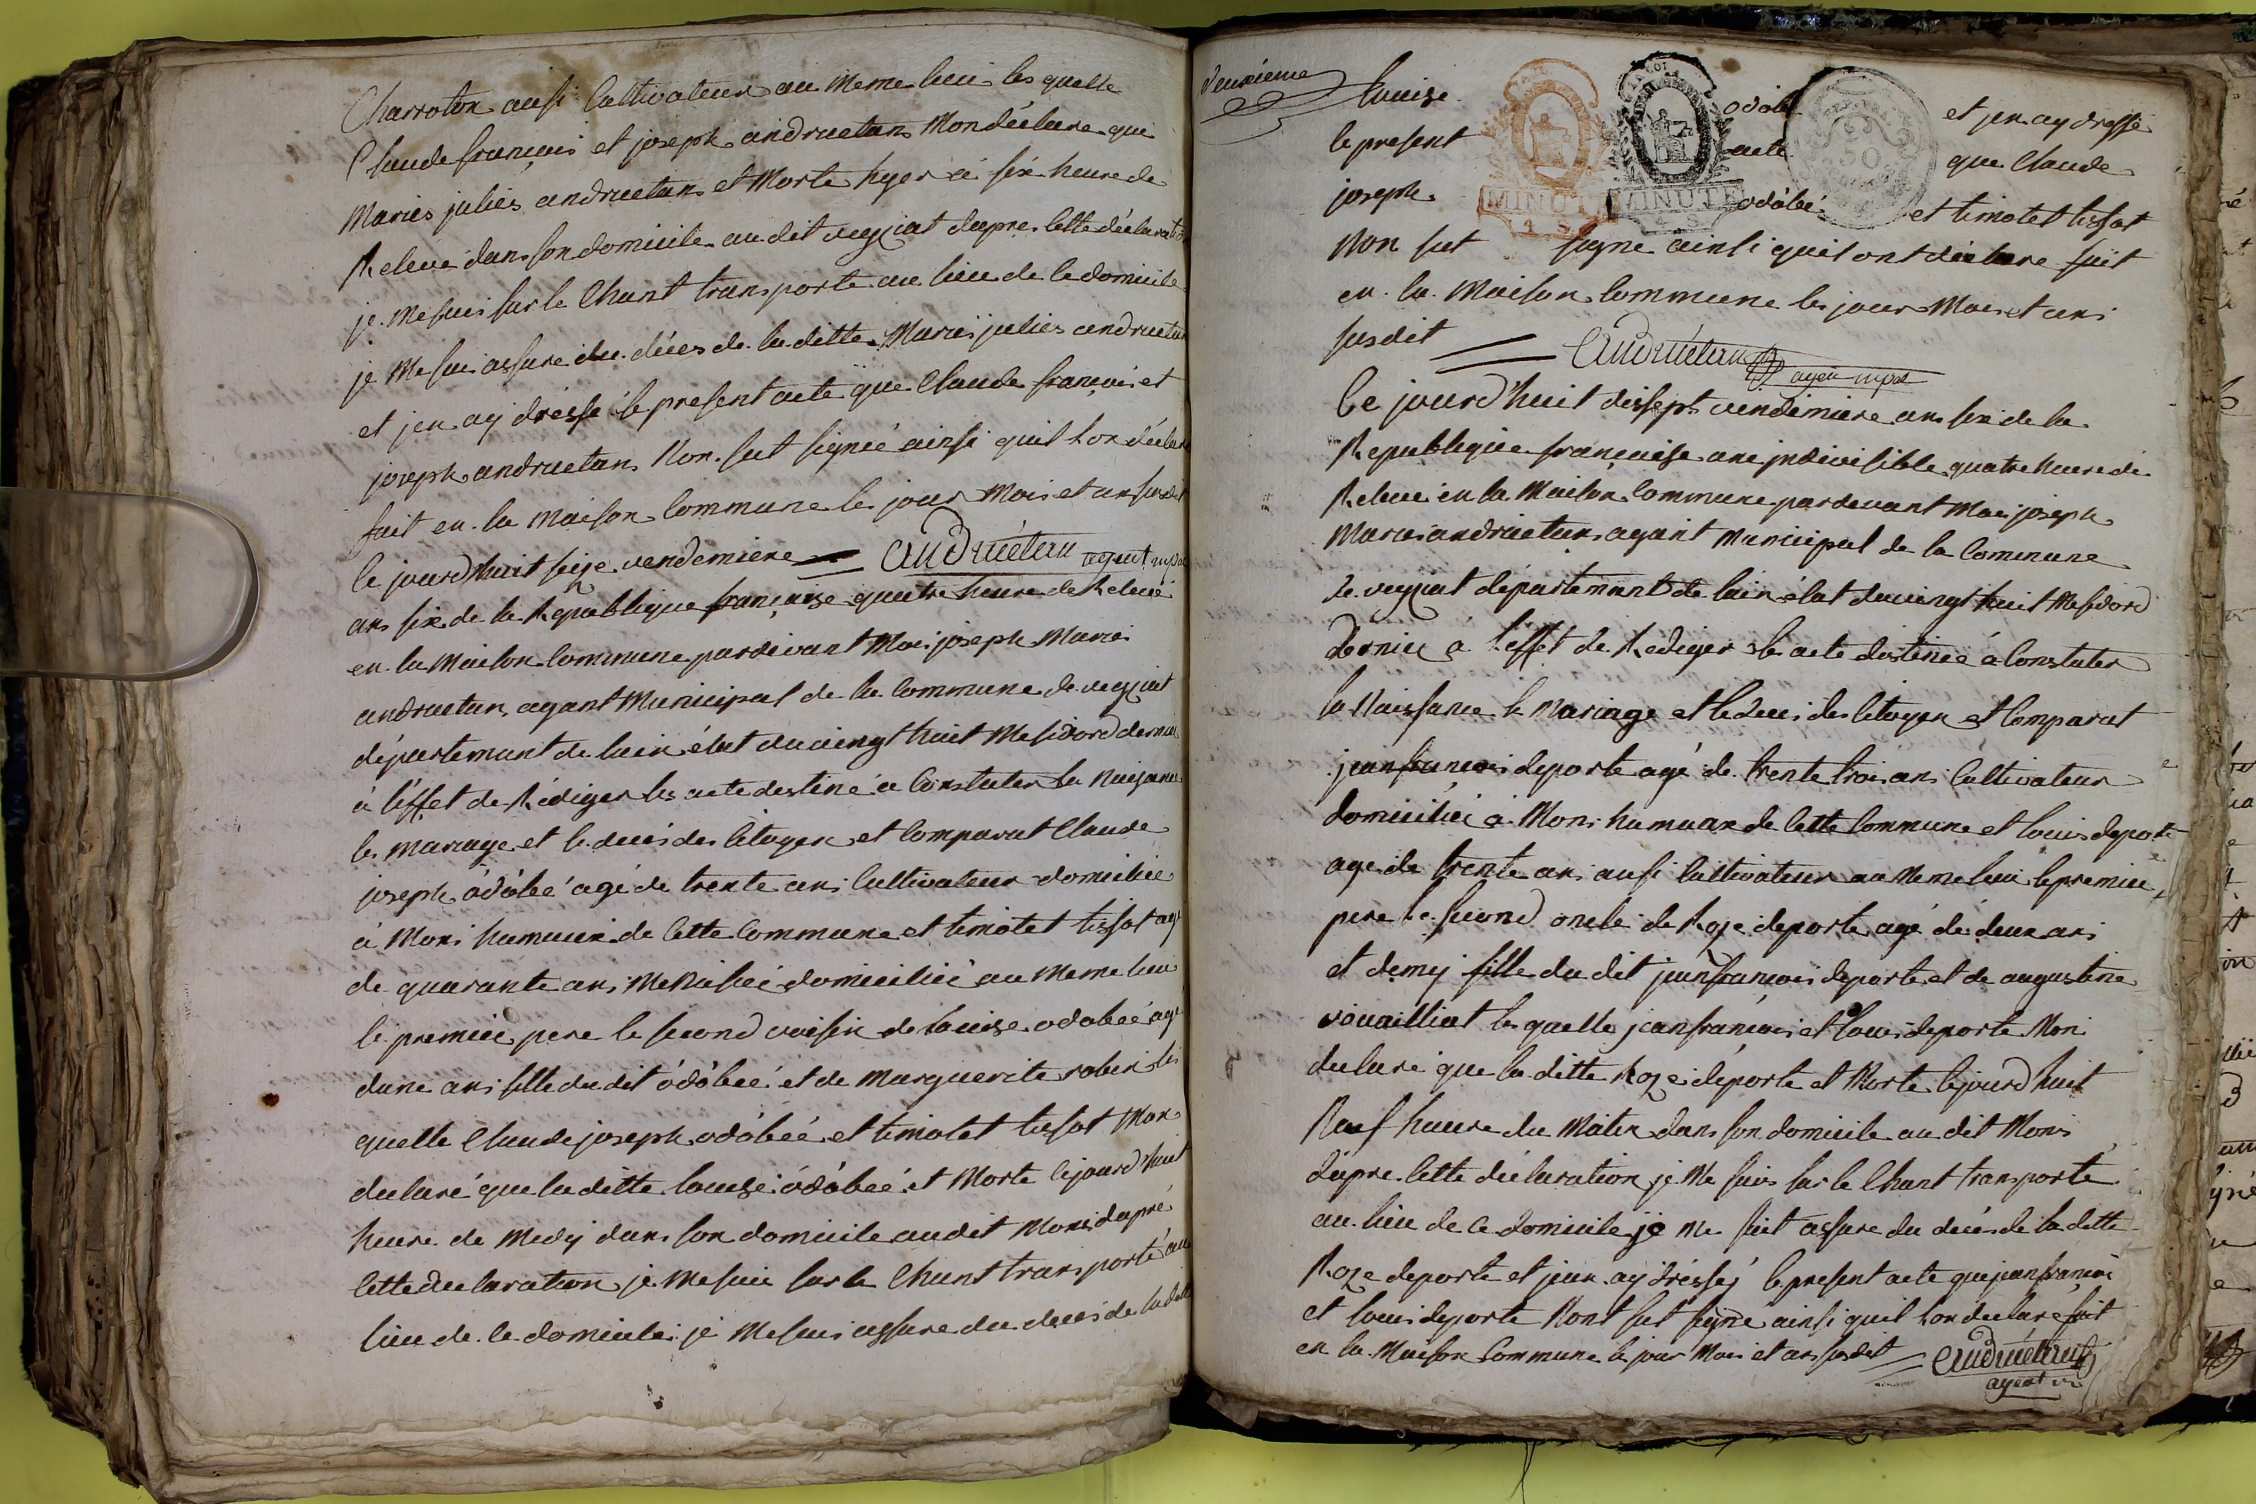 Charroton ausi Cultivateur au Meme lieu les quelle
Claude françois et joseph andruetan Mon déclare que
Maries julies andruetan et Morte hyer à six heure de
Releve dans son domicile au dit veyziat dapres cette déclaration
je me suis sur le Chant transporte au lieu de ce domicile
je Me suis assure du décès de la ditte Maries julies andruetan
et jen ay dressé le present acte que Claude françois et
joseph andruetan Non sut signié ainsi quil lon déclaré
fait en la Maison Commune les jour Mois et an susdit
le jourdhuit seize vendemiere = andruétan agent mpal
an six de la Republique française quatre heure de Relevé
en la Maison Commune pardevant Moi joseph Maries
andruetan agant Municipal de la Commune de veyziat
département de lain élut du vingt huit Mesidord dernier
à l'éffet de Rédiger les acte destiné a Constater la Naissance
les mariage et le decés des Citoyen et Comparut Claude
joseph ôdôbé agé de trente ans Cultivateur domicilié
à Mons humain de Cette Commune et timotet tissot agé
de quarante ans domicilié au Meme lieu
le premier pere le second voisin de louise odobéé agé
dune ans fille du dit ôdôbéé et de Marguerite robin les
quelle Claude joseph odôbéé et timotet tissot Mon
declaré que la ditte louise ôdôbéé et Morte cejourdhuit
heure de Midy dans son domicile audit Mons dapré
Cette declaration je Me suis sur le Chant transporté au
lieu de ce domicile je Me suis assure du decés de la ditte
deuxieme
Louize odobé et jen ay dressé
le present acte que Claude
joseph odôbé et timotet tissot
Non sut signe ainsi quil ont déclare fait
en la Maison Commune les jour Mois et ans
susdit = andruétan agen mpal
Ce jourd'huit dissept vendémiere ans six de la
Republique française une jndivisible quatre heure de
Releve en la Maison Commune pardevant Moi joseph
Maries andruetan agant Municipal de la Commune
de veyziat département de lain élut du vingt huit Mesidord
dernier a l'éffet de Rediger les acte destinéé a Constater
la Naissance le Mariage et le deces des Citoyen et Comparut
jean françois deporte agé de trente trois ans Cultivateur
domicilié à Mons humain de Cette Commune et louis deporte
age de trente ans ausi Cultivateur au Meme lieu le premier
pere le second oncle de Roze deporte agé de deux ans
et demy fille du dit jean françois deporte et de augustine
vouailliat les quelle jean françois et louis deporte Mon
declaré que la ditte Roze deporte et Morte cejourdhuit
Neuf heure du Matin dans son domicile au dit Mons
dapre Cette déclaration je Me suis sur le Chant transporté
au lieu de ce domicile je Me suit assure du decés de la ditte
Roze deporte et jean ay dréssé le present acte que jean françois
et louis deporte Nont sut signe ainsi quil lon declaré fait
en la Maison Commune le jour Mois et ans susdit = andruétan
agent
MINUTE
4 S
MINUTE
4 S
50